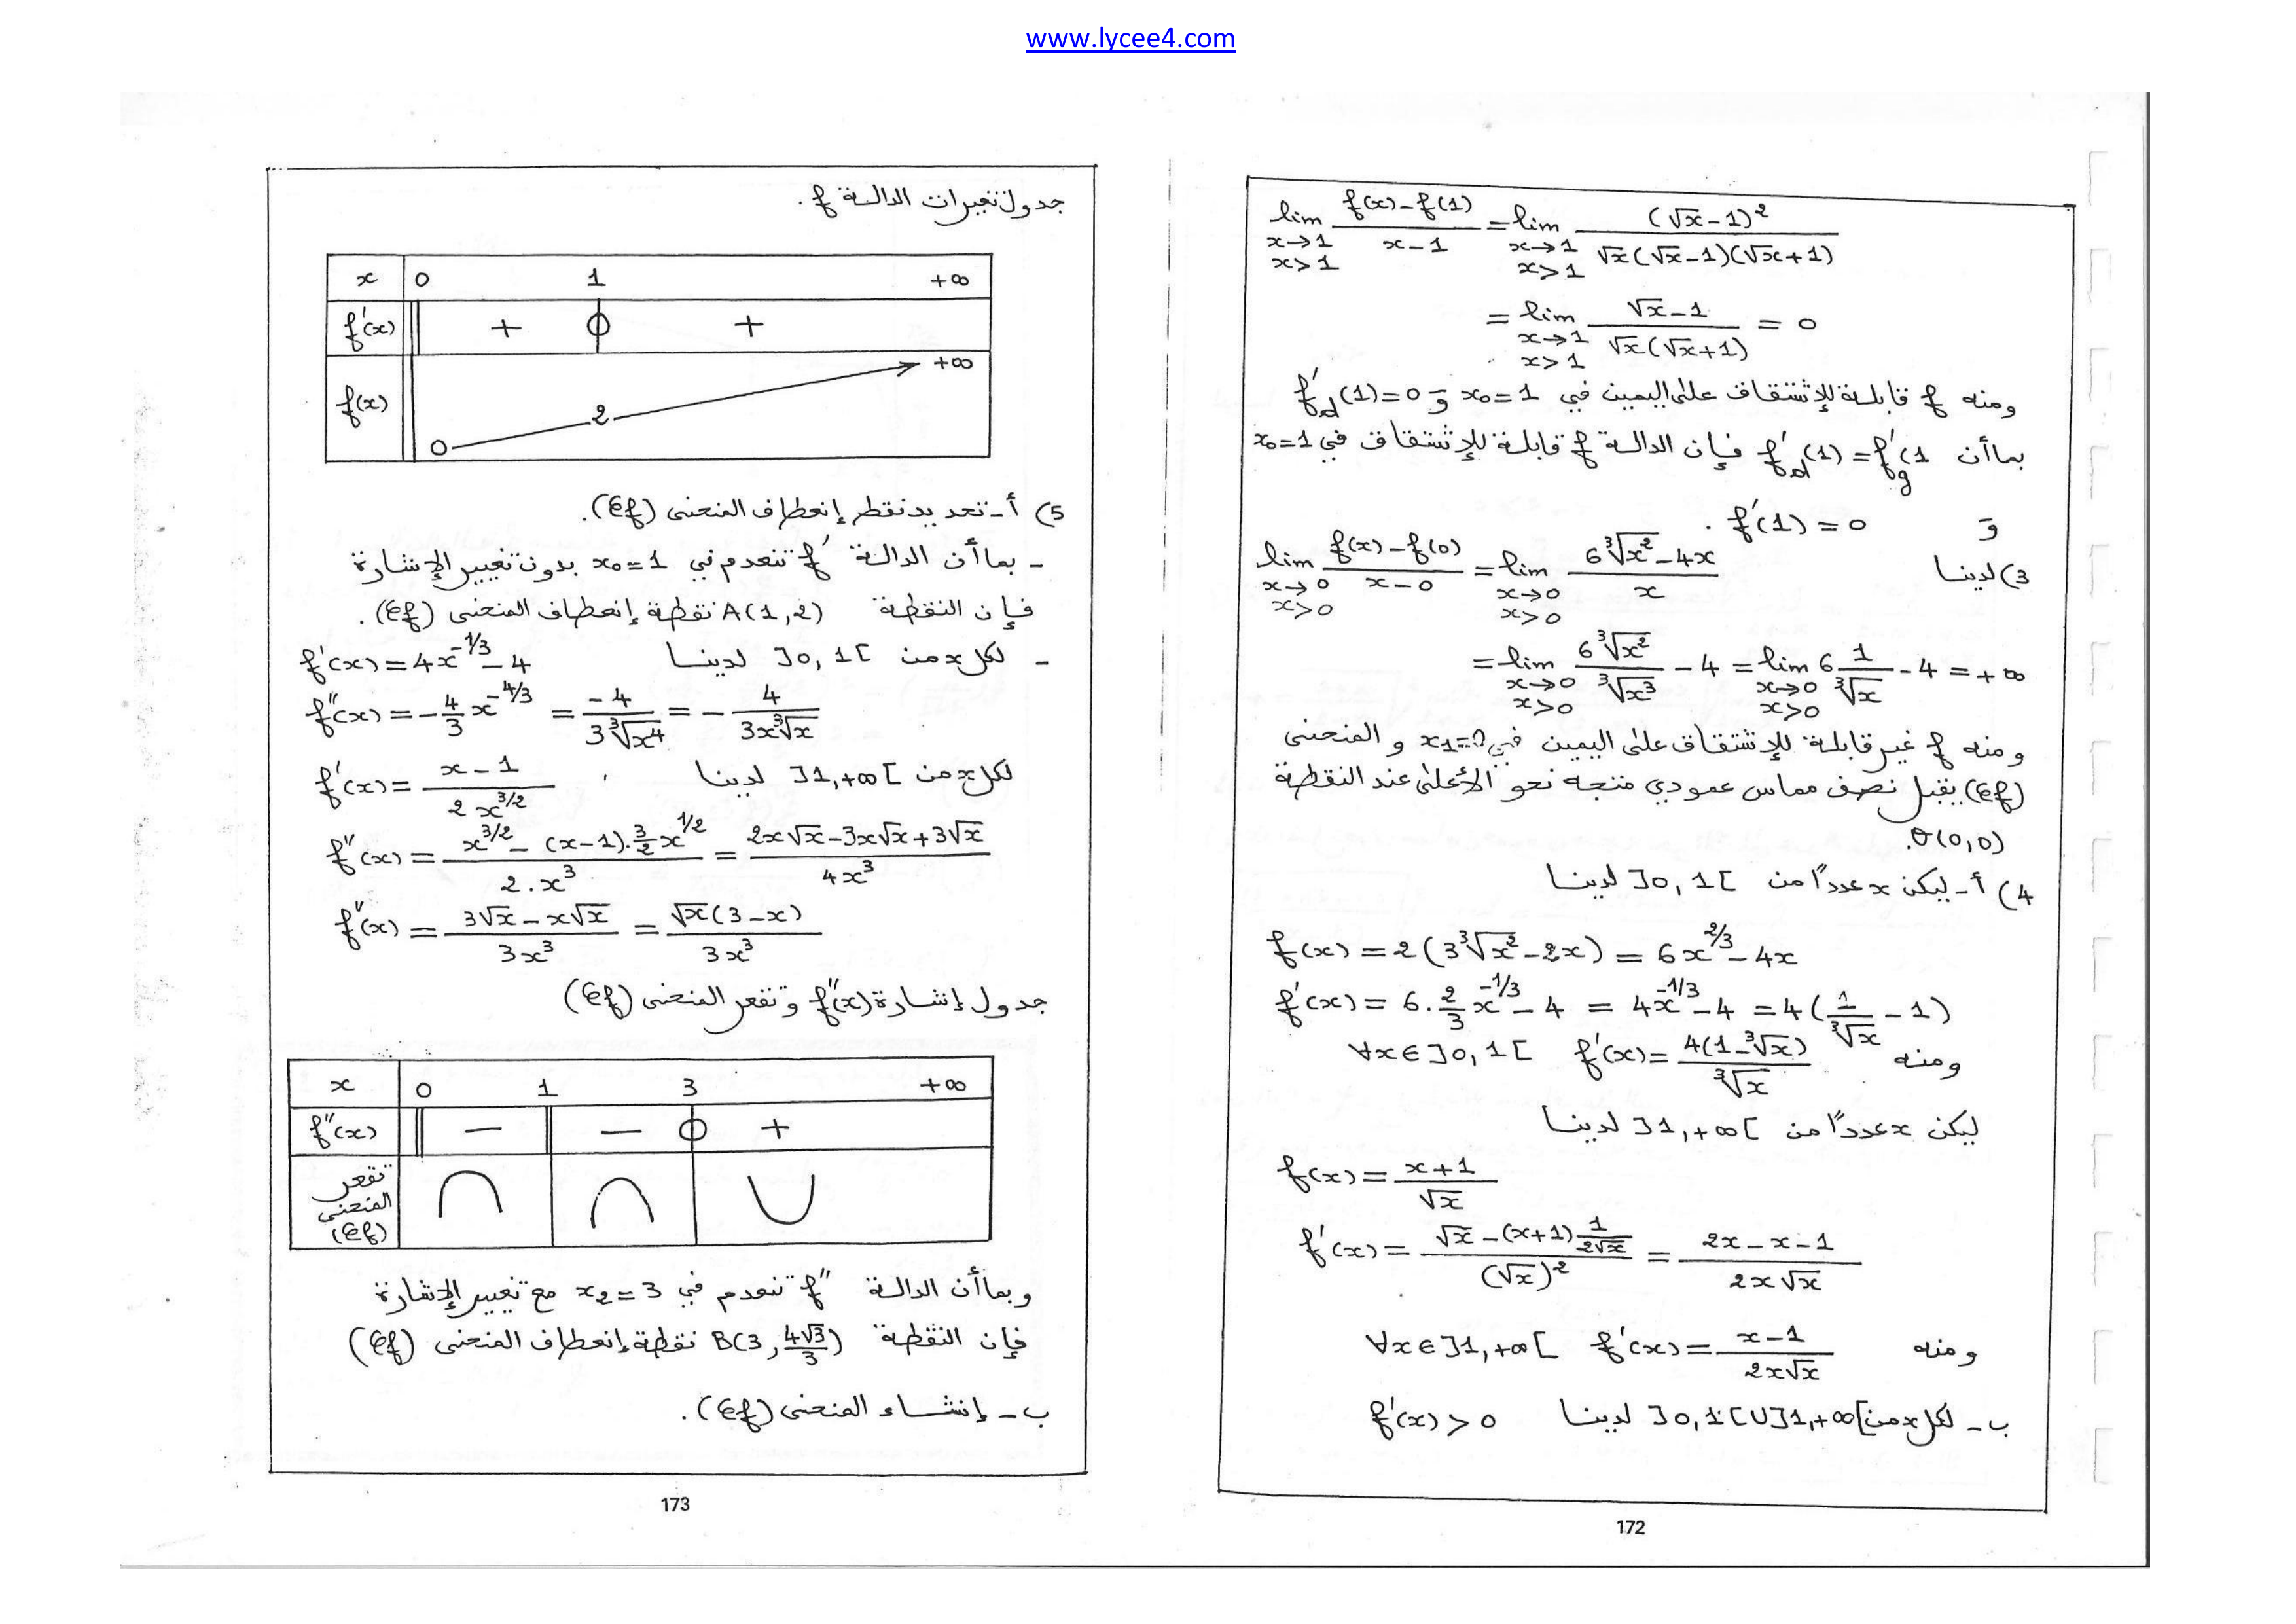 www.lycee4.com
lim_{x→1, x>1} (f(x)-f(1))/(x-1) = lim_{x→1, x>1} (√x-1)²/(√x(√x-1)(√x+1))
= lim_{x→1, x>1} (√x-1)/(√x(√x+1)) = 0
ومنه f قابلة للإشتقاق على اليمين في x₀=1 و f'_d(1)=0
بما أن f'_d(1)=f'_g(1 فإن الدالة f قابلة للإشتقاق في x₀=1
و f'(1)=0 .
3) لدينا lim_{x→0, x>0} (f(x)-f(0))/(x-0) = lim_{x→0, x>0} (6∛x²-4x)/x
= lim_{x→0, x>0} 6∛x²/∛x³ - 4 = lim_{x→0, x>0} 6 1/∛x - 4 = +∞
ومنه f غير قابلة للإشتقاق على اليمين في x₁=0 و المنحنى
(Cf) يقبل نصف مماس عمودي متجه نحو الأعلى عند النقطة
O(0,0).
4) أ- ليكن x عدداً من ]0,1[ لدينا
f(x) = 2(3∛x²-2x) = 6x^{2/3}-4x
f'(x) = 6.2/3 x^{-1/3}-4 = 4x^{-1/3}-4 = 4(1/∛x - 1)
ومنه ∀x∈]0,1[ f'(x) = 4(1-∛x)/∛x
ليكن x عدداً من ]1,+∞[ لدينا
f(x) = (x+1)/√x
f'(x) = (√x-(x+1) 1/(2√x))/(√x)² = (2x-x-1)/(2x√x)
ومنه ∀x∈]1,+∞[ f'(x) = (x-1)/(2x√x)
ب- لكل x من ]0,1[∪]1,+∞[ لدينا f'(x) > 0
172
جدول تغيرات الدالة f .
x 0 1 +∞
f'(x) + 0 +
f(x) 0 2 +∞
5) أ- تحديد نقط إنعطاف المنحنى (Cf).
- بما أن الدالة f' تنعدم في x₀=1 بدون تغيير الإشارة
فإن النقطة A(1,2) نقطة إنعطاف المنحنى (Cf).
- لكل x من ]0,1[ لدينا f'(x) = 4x^{-1/3}-4
f''(x) = -4/3 x^{-4/3} = -4/(3∛x⁴) = -4/(3x∛x)
لكل x من ]1,+∞[ لدينا f'(x) = (x-1)/(2x^{3/2})
f''(x) = (x^{3/2}-(x-1).3/2 x^{1/2})/(2.x³) = (2x√x-3x√x+3√x)/(4x³)
f''(x) = (3√x-x√x)/(3x³) = √x(3-x)/(3x³)
جدول إشارة f''(x) و تقعر المنحنى (Cf)
x 0 1 3 +∞
f''(x) - - 0 +
تقعر
المنحنى
(Cf)
وبما أن الدالة f'' تنعدم في x₂=3 مع تغيير الإشارة
فإن النقطة B(3, 4√3/3) نقطة إنعطاف المنحنى (Cf)
ب- إنشاء المنحنى (Cf).
173